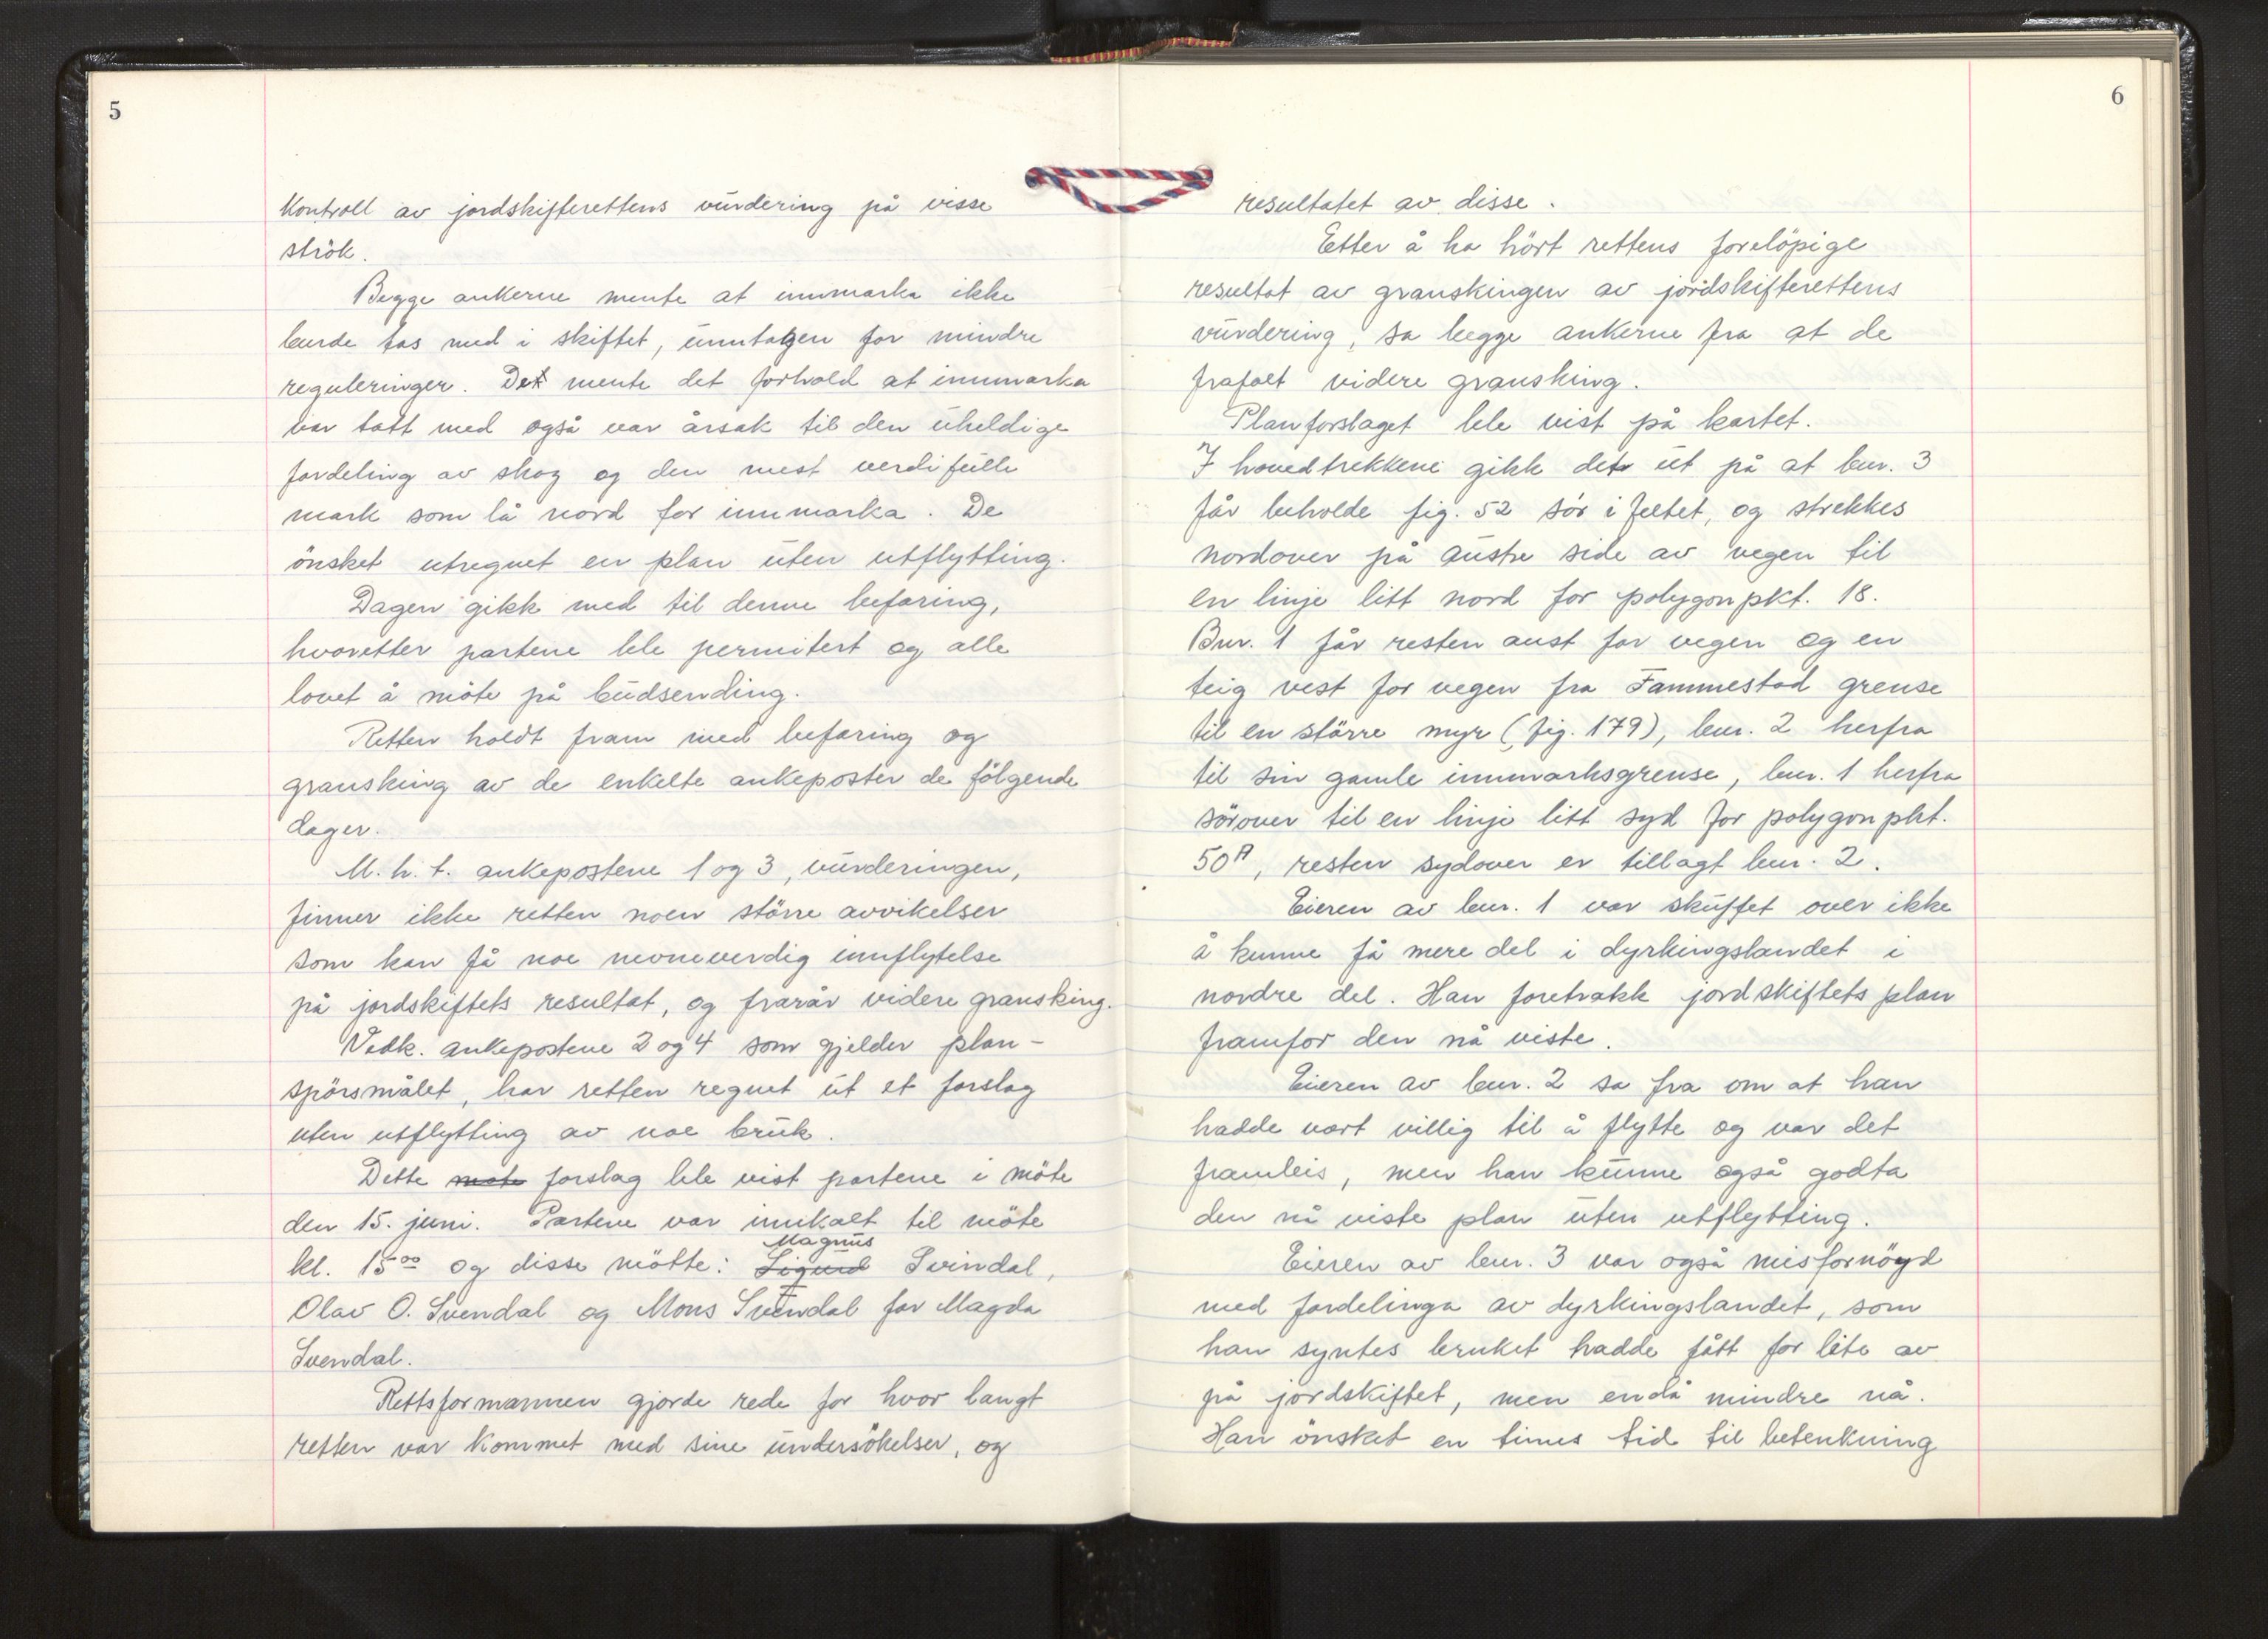 5
Kontroll av jordskifterettens vurdering på visse
strök.
Begge ankerne mente at innmarka ikke
burde tas med i skiftet, unntagen for mindre
reguleringer. Det mente det forhold at innmarka
var tatt med også var årsak til den uheldige
fordeling av skog og den mest verdifulle
mark som lå nord for innmarka. De
önsket utregnet en plan uten utflytting.
Dagen gikk med til denne befaring,
hvoretter partene ble permitert og alle
lovet å möte på budsending.
Retten holdt fram med befaring og
gransking av de enkelte ankeposter de fölgende
dager.
M. h. t. ankepostene 1 og 3, vurderingen,
finner ikke retten noen större avvikelser
som kan få noe nevneverdig innflytelse
på jordskiftets resultat, og frarår videre gransking.
Vedk. ankepostene 2 og 4 som gjelder plan-
spörsmålet, har retten regnet ut et forslag
uten utflytting av noe bruk.
Dette möte forslag ble vist partene i möte
den 15. juni. Partene var innkalt til möte
Magnus
kl. 15⁰⁰ og disse mötte: Sigurd Svindal,
Olav O. Svendal og Mons Svendal for Magda
Svendal.
Rettsformannen gjorde rede for hvor langt
retten var kommet med sine undersökelser, og
6
resultatet av disse.
Etter å ha hört rettens forelöpige
resultat av granskingen av jordskifterettens
vurdering, sa begge ankerne fra at de
frafalt videre gransking.
Planforslaget ble vist på kartet.
I hovedtrekkene gikk det ut på at bnr. 3
får beholde fig. 52 sör i feltet, og strekkes
nordover på austre side av vegen til
en linje litt nord for polygonpkt. 18.
Bnr. 1 får resten aust for vegen og en
teig vest for vegen fra Fammestad grense
til en större myr (fig. 179), bnr. 2 herfra
til sin gamle innmarksgrense, bnr. 1 herfra
sörover til en linje litt syd for polygonpkt.
50ᴬ, resten sydover er tillagt bnr. 2.
Eieren av bnr. 1 var skuffet over ikke
å kunne få mere del i dyrkingslandet i
nordre del. Han foretrakk jordskiftets plan
framfor den nå viste.
Eieren av bnr. 2 sa fra om at han
hadde vært villig til å flytte og var det
framleis, men han kunne også godta
den nå viste plan uten utflytting.
Eieren av bnr. 3 var også misfornöyd
med fordelinga av dyrkingslandet, som
han syntes bruket hadde fått for lite av
på jordskiftet, men enda mindre nå.
Han önsket en times tid til betenkning